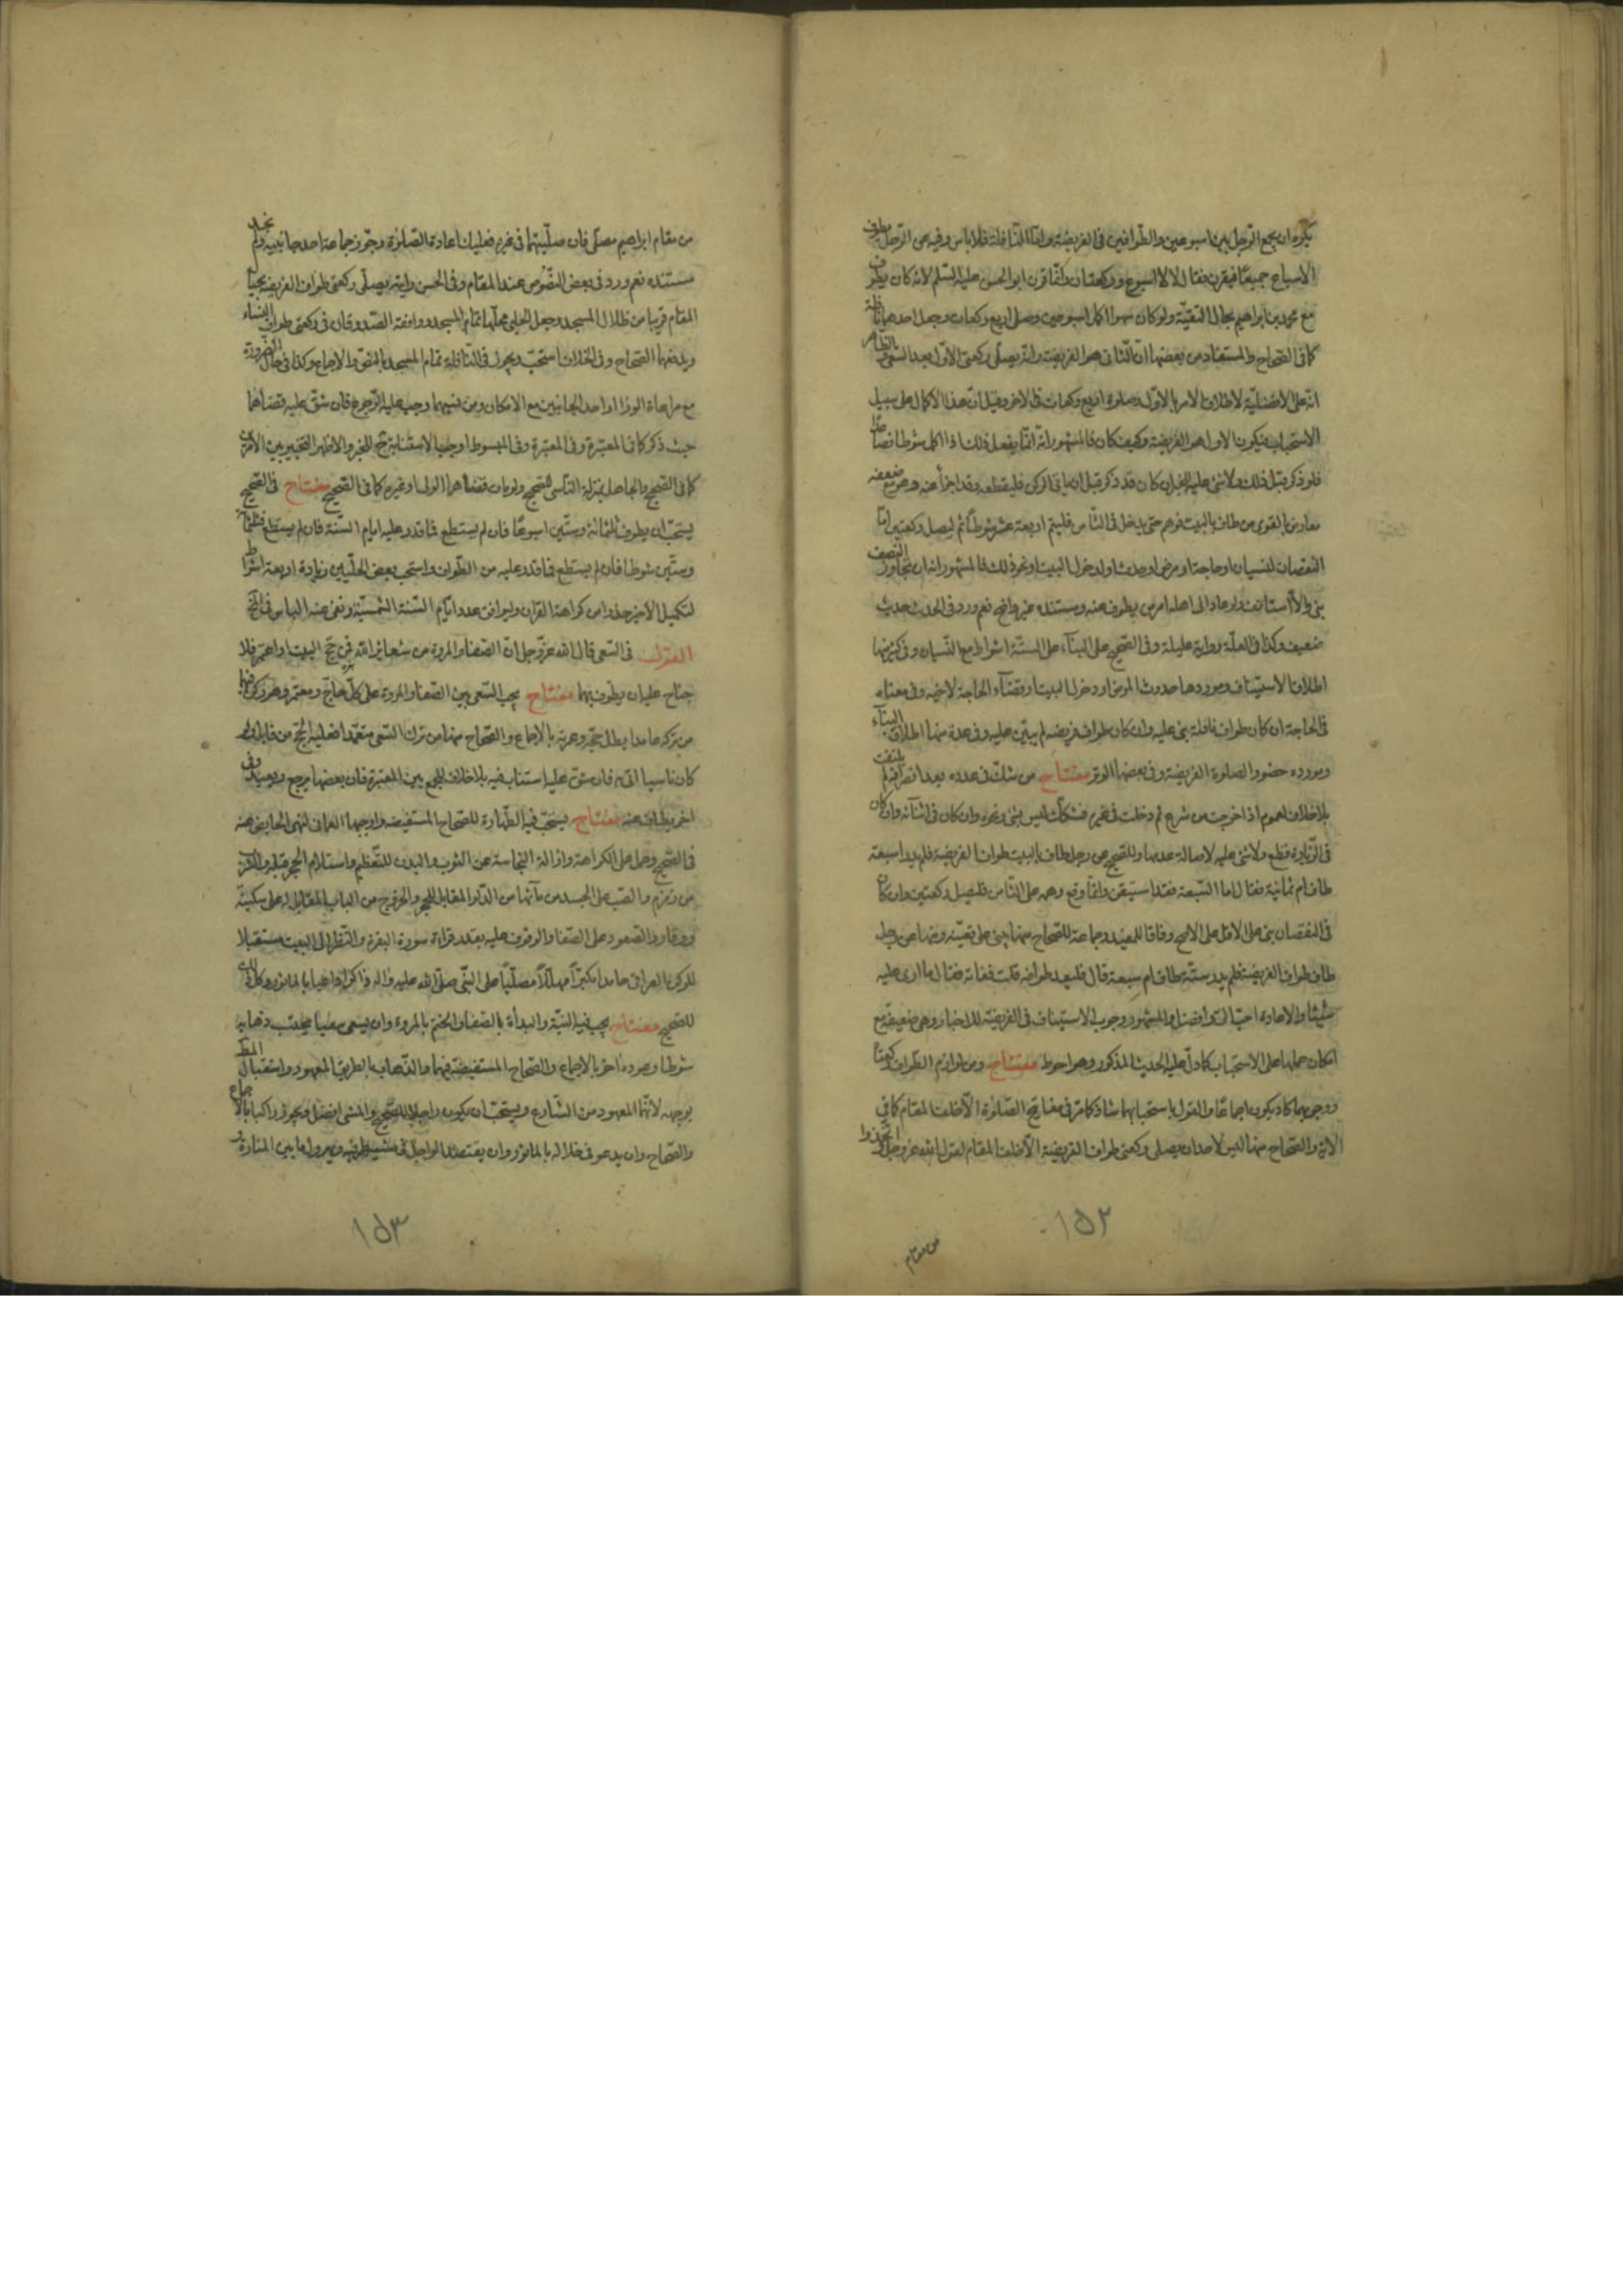 يكره ان يجمع الرجل بين اسبوعين والطوافين في الفريضة واما النافلة فلا باس وفيه عن الرجل يطوف
الاسباع جميعا فيقرن فقال لا الا اسبوع وركعتان وانما قرن ابو الحسن عليه السلم لانه كان يطوف
مع محمد بن ابراهيم لحال التقية ولو كان سهوا اكمل اسبوعين وصلى اربع ركعات وجعل احدهما نافلة
كما في الصحاح والمستفاد من بعضها ان الثاني هو الفريضة وانه يصلي ركعتي الاول بعد السعي والظاهر
انه على الافضلية لاطلاق الامر بالاول وصلوة اربع ركعات في الاخر وقيل ان هذا الاكمال على سبيل
الاستحباب فيكون الاول هو الفريضة وكيف كان فالمشهور انه انما يفعل ذلك اذا اكمل شوطا فصاعدا
فلو ذكر قبل ذلك ولا شئ عليه للخبر ان كان قد ذكر قبل ان ياتي الركن فليقطعه وقد اجزأ عنه وهو مع ضعفه
معارض بالقوى من طاف بالبيت فوهم حتى يدخل في الثامن فليتم اربعة عشر شوطا ثم ليصل ركعتين اما
النقصان لنسيان او حاجة او مرض او حدث او لدخول البيت او نحو ذلك فالمشهور انه ان تجاوز النصف
بنى والا استانف ولو عاد الى اهله امر من يطوف عنه ومستنده غير واضح نعم ورد في الحدث حديث
ضعيف وكذا في العلة رواية عليلة وفي الصحيح على البناء على الستة اشواط مع النسيان وفي كثير منها
اطلاق الاستيناف وموردها حدوث المرض او دخول البيت او قضاء الحاجة لاخيه وفي معناه
في الحاجة ان كان طواف نافلة بنى عليه وان كان طواف فريضة لم يبن عليه وفي عدة منها اطلاق البناء
ومورده حضور الصلوة الفريضة وفي بعضها الوتر مفتاح من شك في عدده بعد انصرافه لم يلتفت
بلا خلاف لعموم اذا خرجت من شئ ثم دخلت في غيره فشكك ليس بشئ ونحوه وان كان في اثنائه وان كان
في الزيادة قطع ولا شئ عليه لاصالة عدمها وللصحيح عن رجل طاف بالبيت طواف الفريضة فلم يدر اسبعة
طاف ام ثمانية فقال اما السبعة فقد استيقن وانما وقع وهمه على الثامن فليصل ركعتين وان كان
في النقصان بنى على الاقل على الاصح وفاقا للمفيد وجماعة للصحاح منها يبنى على يقينه ومنها عن رجل
طاف طواف الفريضة فلم يدر ستة طاف ام سبعة قال فليعد طوافه قلت ففاته فقال ما ارى عليه
شيئا والاعادة احب الي وافضل والمشهور وجوب الاستيناف في الفريضة للاخبار وهي ضعيفة مع
امكان حملها على الاستحباب كما دل عليه الحديث المذكور وهو احوط مفتاح ومن لوازم الطواف ركعتاه
ووجوبهما كاد يكون اجماعا والقول باستحبابهما شاذ كما مر في مفاتيح الصلوة الا خلف المقام كما في
الاية والصحاح منها ليس لاحد ان يصلي ركعتي طواف الفريضة الا خلف المقام لقول الله عز وجل واتخذوا
من مقام
١٥٢
من مقام ابراهيم مصلى فان صليتهما في غيره فعليك اعادة الصلوة وجوز جماعة احد جانبيه ولم نجد
مستنده نعم ورد في بعض النصوص عند المقام وفي الحسن رايته يصلي ركعتي طواف الفريضة بحيال
المقام قريبا من ظلال المسجد وجعل الحلبي محلهما تمام المسجد ووافقه الصدوقان في ركعتي طواف النساء
ويدفعهما الصحاح وفي الخلاف استحب ويجوز في النافلة تمام المسجد بالنص والاجماع وكذا في حال الضرورة
مع مراعاة الوراء او احد الجانبين مع الامكان ومن نسيهما وجب عليه الرجوع فان شق عليه قضاهما
حيث ذكر كما في المعتبرة وفي المبسوط اوجب الاستنابة ح للخبر والاظهر التخيير بين الامرين
كما في الصحيح والجاهل بمنزلة الناسي للصحيح ولو مات قضاهما الولي او غيره كما في الصحيح مفتاح في الصحيح
يستحب ان يطوف ثلثمائة وستين اسبوعا فان لم يستطع فما قدر عليه ايام السنة فان لم يستطع فثلثمائة
وستين شوطا فان لم يستطع فما قدر عليه من الطواف واستحب بعض الحلبيين زيادة اربعة اشواط
لتكميل الاخير حذرا من كراهة القران وليوافق عدد ايام السنة الشمسية ونفى عنه الباس في المختلف
القول في السعي قال الله عز وجل ان الصفا والمروة من شعائر الله فمن حج البيت او اعتمر فلا
جناح عليه ان يطوف بهما مفتاح يجب السعي بين الصفا والمروة على كل حاج ومعتمر وهو ركن فيهما
من تركه عامدا بطل حجه وعمرته بالاجماع والصحاح منها من ترك السعي متعمدا فعليه الحج من قابل ولو
كان ناسيا اتى به فان شق عليه استناب فيه بلا خلاف للجمع بين المعتبرة فان بعضها يرجع ويعيد وفي
اخر يطاف عنه مفتاح يستحب فيه الطهارة للصحاح المستفيضة واوجبها العماني لنهي الحايض عنه
في الصحيح وحمل على الكراهة وازالة النجاسة عن الثوب والبدن للتعظيم واستلام الحجر قبله والشرب
من زمزم والصب على الجسد من مائها من الدلو المقابل للحجر والخروج من الباب المقابل له على سكينة
ووقار والصعود على الصفا والوقوف عليه بقدر قراءة سورة البقرة والنظر الى البيت مستقبلا
للركن العراقي حامدا مكبرا مهللا مصليا على النبي صلى الله عليه واله ذاكرا داعيا بالماثور وكل ذلك
للصحيح مفتاح يجب فيه النية والبدأة بالصفا والختم بالمروة وان يسعى سبعا يحتسب ذهابه
شوطا وعوده اخر بالاجماع والصحاح المستفيضة فيهما والذهاب بالطريق المعهود واستقبال المطلوب
بوجهه لانهما المعهود من الشارع ويستحب ان يكون راجلا للصحيح والمشي افضل ويجوز راكبا بالاجماع
والصحاح وان يدعو في خلاله بالماثور وان يقتصد الراجل في مشيه طرفيه ويهرول ما بين المنارة و
١٥٣